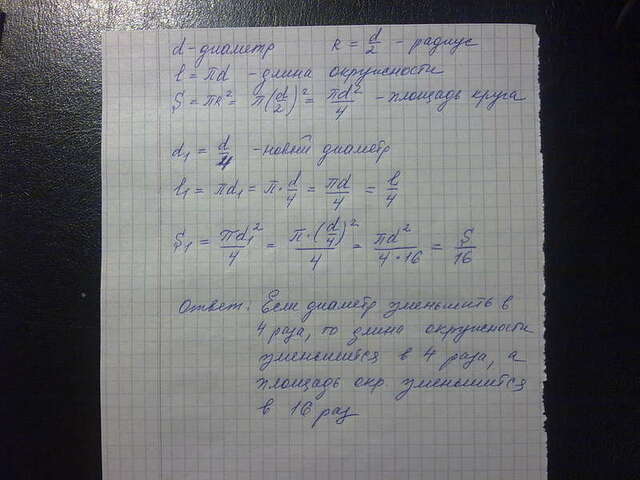 d - диаметр R = d/2 - радиус
l = πd - длина окружности
S = πR² = π(d/2)² = πd²/4 - площадь круга
d₁ = d/4 - новый диаметр
l₁ = πd₁ = π · d/4 = πd/4 = l/4
S₁ = πd₁²/4 = π·(d/4)²/4 = πd²/4·16 = S/16
Ответ: Если диаметр уменьшить в
4 раза, то длина окружности
уменьшится в 4 раза, а
площадь окр. уменьшится
в 16 раз